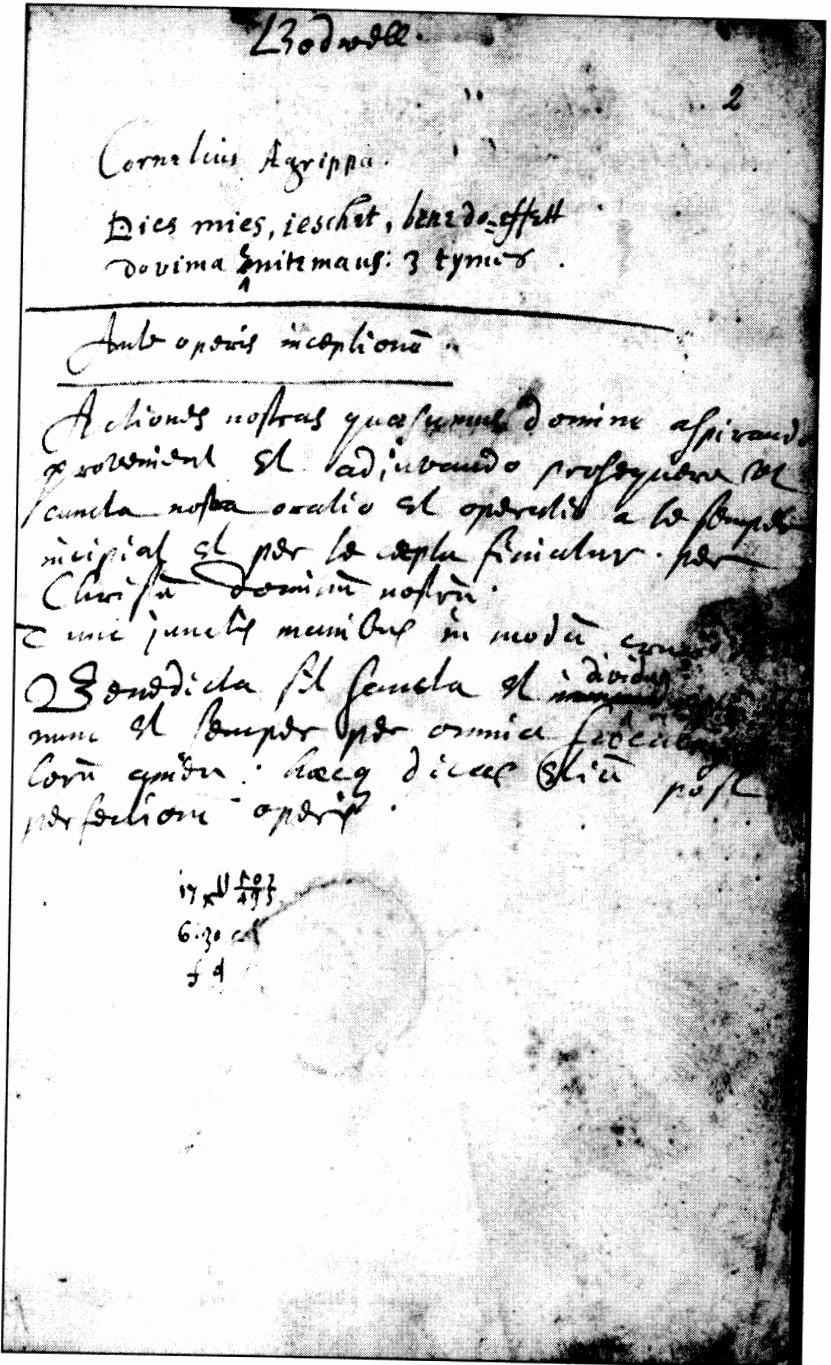 Bodwell.
2
Cornelius Agrippa.
Dies mies, ieschet, benedo=effett
dovima Enitemaus: 3 tymes.
Ante operis inceptionē
Actiones nostras quæsumus domine aspirando
provenient et adjuvando prosequere ut
cuncta nostra oratio et operatio a te semper
incipiat et per te cæpta finiatur. per
Christū dominū nostrū.
Tunc junctis manibus in modū
Benedicta sit sancta et individua
nunc et semper per omnia
lorū amen: hæcq dicas etiā post
perfectionē operis.
6.30